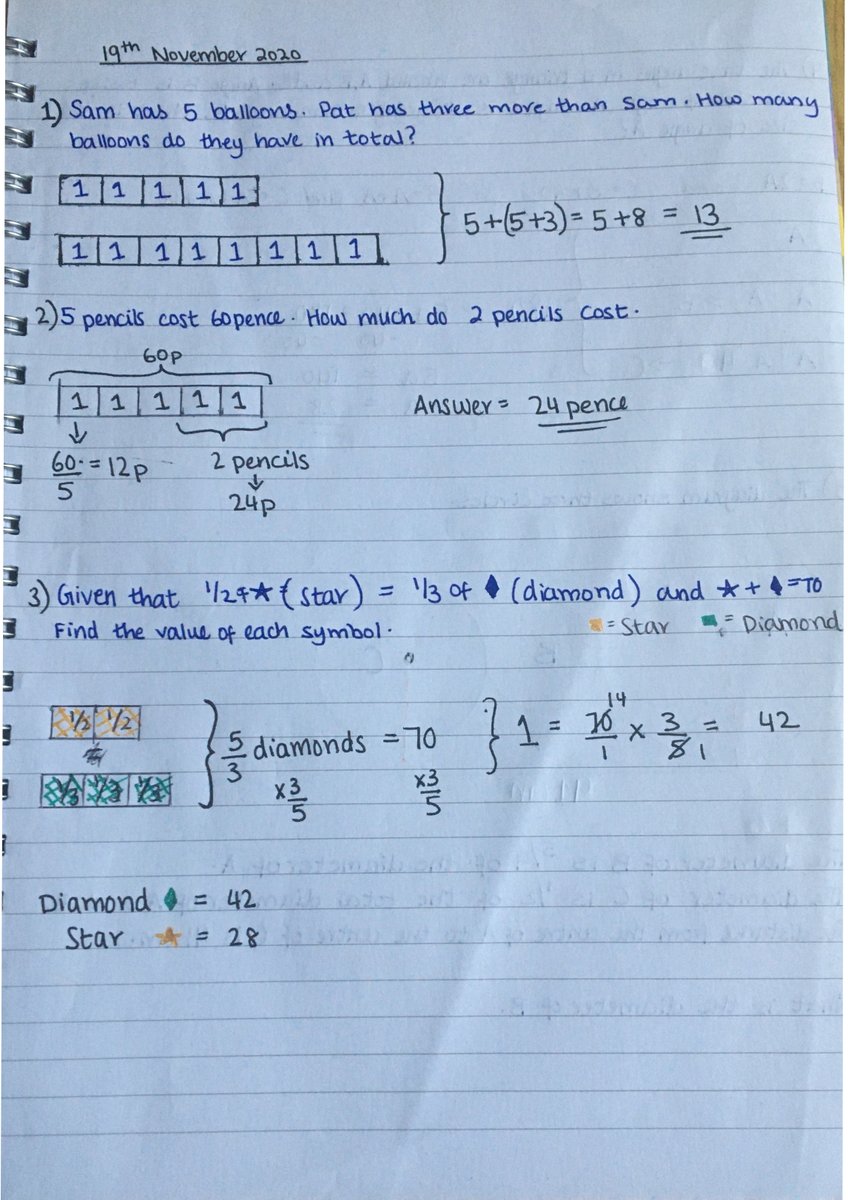 19th November 2020
1) Sam has 5 balloons. Pat has three more than Sam. How many
balloons do they have in total?
1 1 1 1 1
1 1 1 1 1 1 1 1
5+(5+3) = 5+8 = 13
2) 5 pencils cost 60pence. How much do 2 pencils cost.
60p
1 1 1 1 1
Answer = 24 pence
60/5 = 12p
2 pencils
24p
3) Given that 1/2 of ★ (star) = 1/3 of ♦ (diamond) and ★ + ♦ = 70
Find the value of each symbol.
= Star = Diamond
1/2 1/2
1/3 1/3 1/3
5/3 diamonds = 70
×3/5 ×3/5
1 = 70/1 14 × 3/5 1 = 42
Diamond ♦ = 42
Star ★ = 28